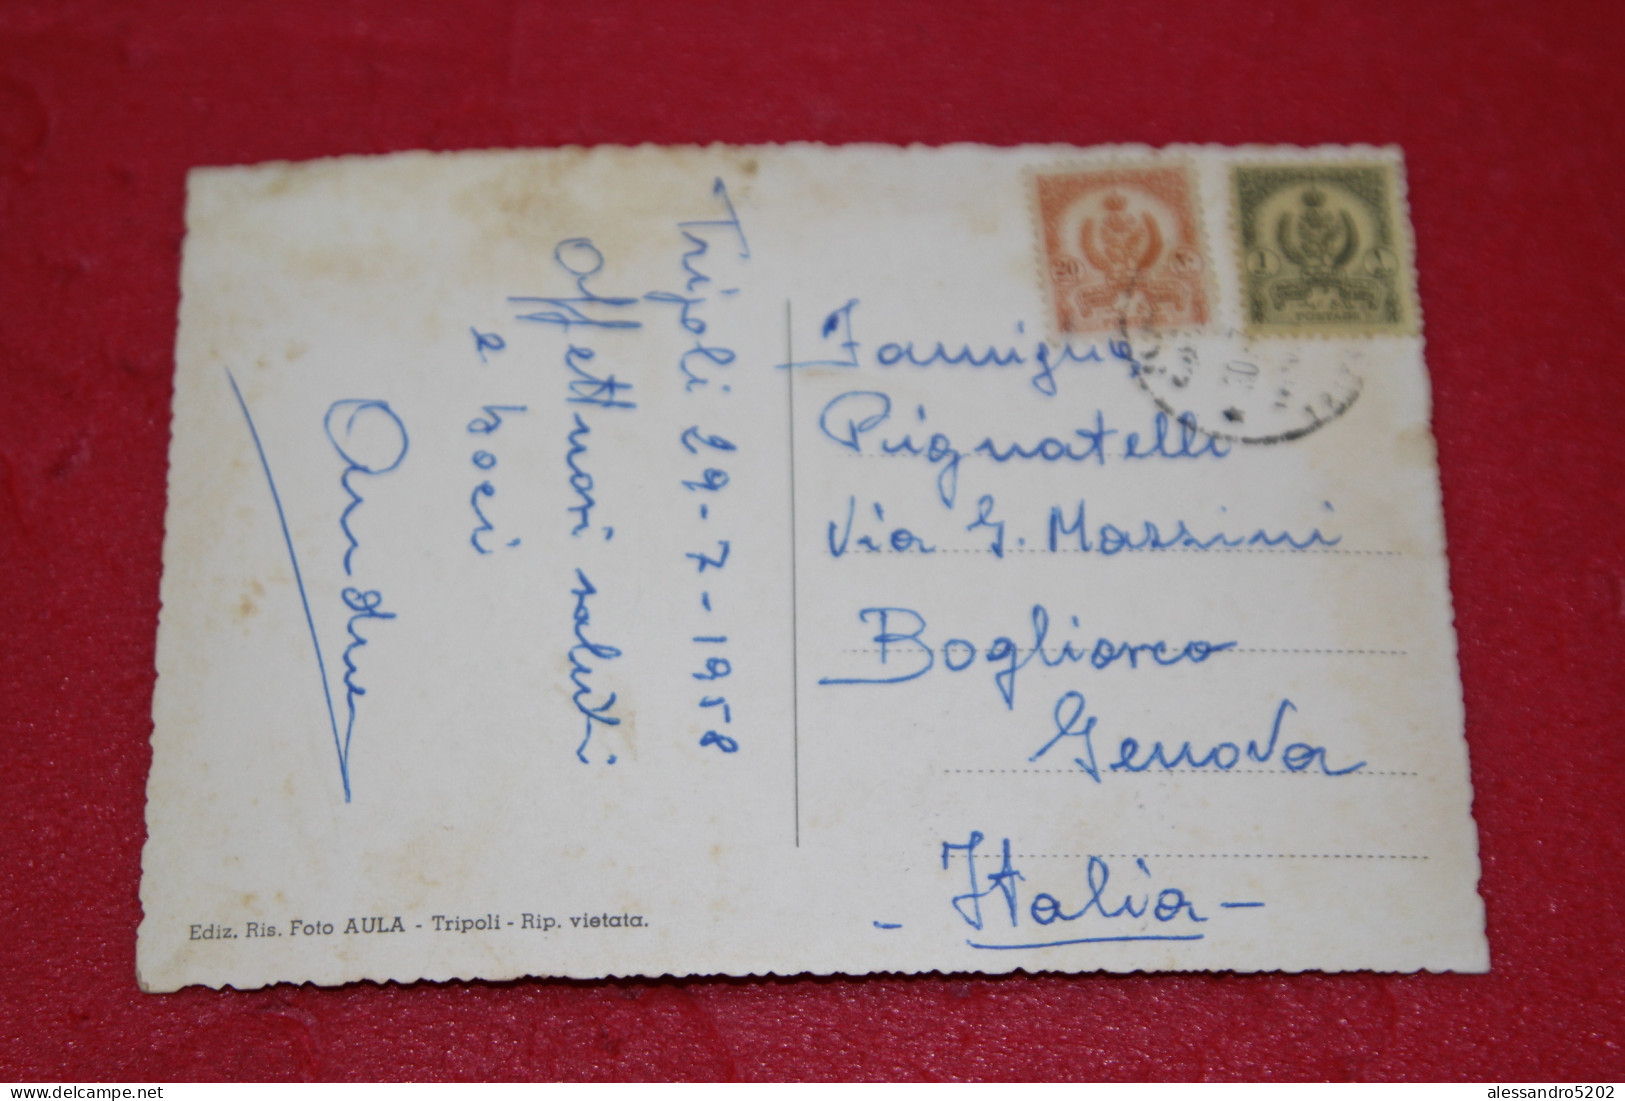 Tripoli 29-7-1958
Affettuosi saluti
e baci
Andrea
Famiglia
Pignatelli
Via G. Mazzini
Bogliasco
Genova
- Italia -
20
1
POSTAGE
Ediz. Ris. Foto AULA - Tripoli - Rip. vietata.
alessandro5202